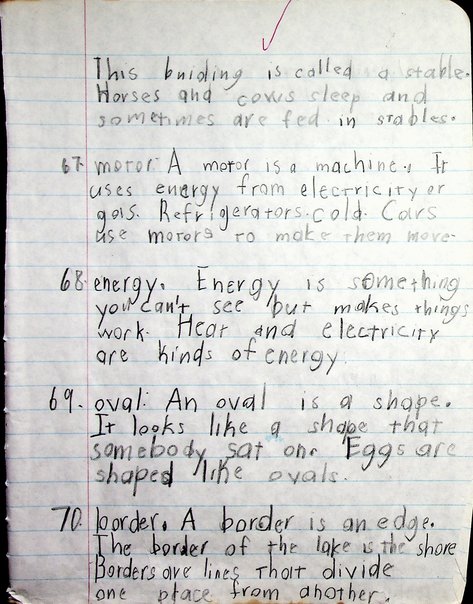 This buiding is called a stable.
Horses and cows sleep and
sometimes are fed in stables.
67. motor. A motor is a machine. It
uses energy from electricity er
gas. Refrigerators. cold. Cars
use motors to make them move.
68. energy. Energy is something
you can't see but makes things
work. Heat and electricity
are kinds of energy.
69. oval. An oval is a shape.
It looks like a shape that
somebody sat on. Eggs are
shaped like ovals.
70. border. A border is an edge.
The border of the lake is the shore
Borders are lines that divide
one place from another.